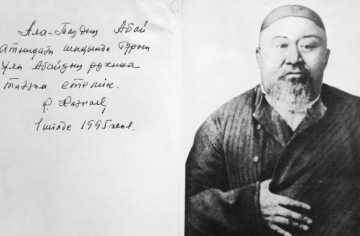 Ала-Таудың Абай
Атындағы шыңында Тұрып
Ұлы Абайдың рухына
тағзым етемік.
1 шілде 1995 жыл.